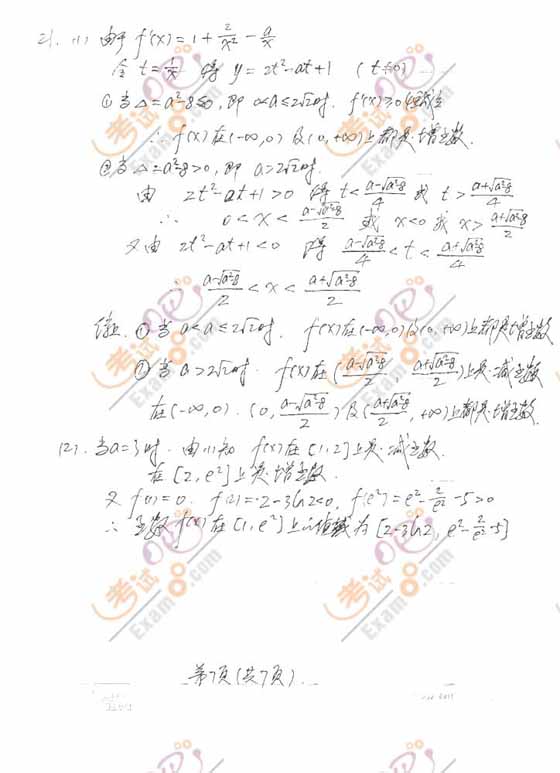 21. (1) 由于 f'(x)=1+2/x²-a/x
令 t=1/x 得 y=2t²-at+1 (t≠0)
①当△=a²-8≤0, 即 0<a≤2√2时. f'(x)≥0恒成立
∴ f(x)在(-∞,0)及(0,+∞)上都是增函数.
②当△=a²-8>0, 即 a>2√2时.
由 2t²-at+1>0 得 t<(a-√(a²-8))/4 或 t>(a+√(a²-8))/4
∴ 0<x<(a-√(a²-8))/2 或 x<0 或 x>(a+√(a²-8))/2
又由 2t²-at+1<0 得 (a-√(a²-8))/4<t<(a+√(a²-8))/4
∴ (a-√(a²-8))/2<x<(a+√(a²-8))/2
综上 ①当 0<a≤2√2时. f(x)在(-∞,0)及(0,+∞)上都是增函数
②当 a>2√2时. f(x)在((a-√(a²-8))/2, (a+√(a²-8))/2)上是减函数
在(-∞,0). (0,(a-√(a²-8))/2)及((a+√(a²-8))/2,+∞)上都是增函数.
(2). 当a=3时. 由(1)知 f(x)在[1,2]上是减函数.
在[2,e²]上是增函数.
又 f(1)=0. f(2)=2-3ln2<0, f(e²)=e²-2/e²-5>0
∴ 函数f(x)在[1,e²]上的值域为[2-3ln2, e²-2/e²-5]
第7页(共7页).
考试吧
Exam8.com